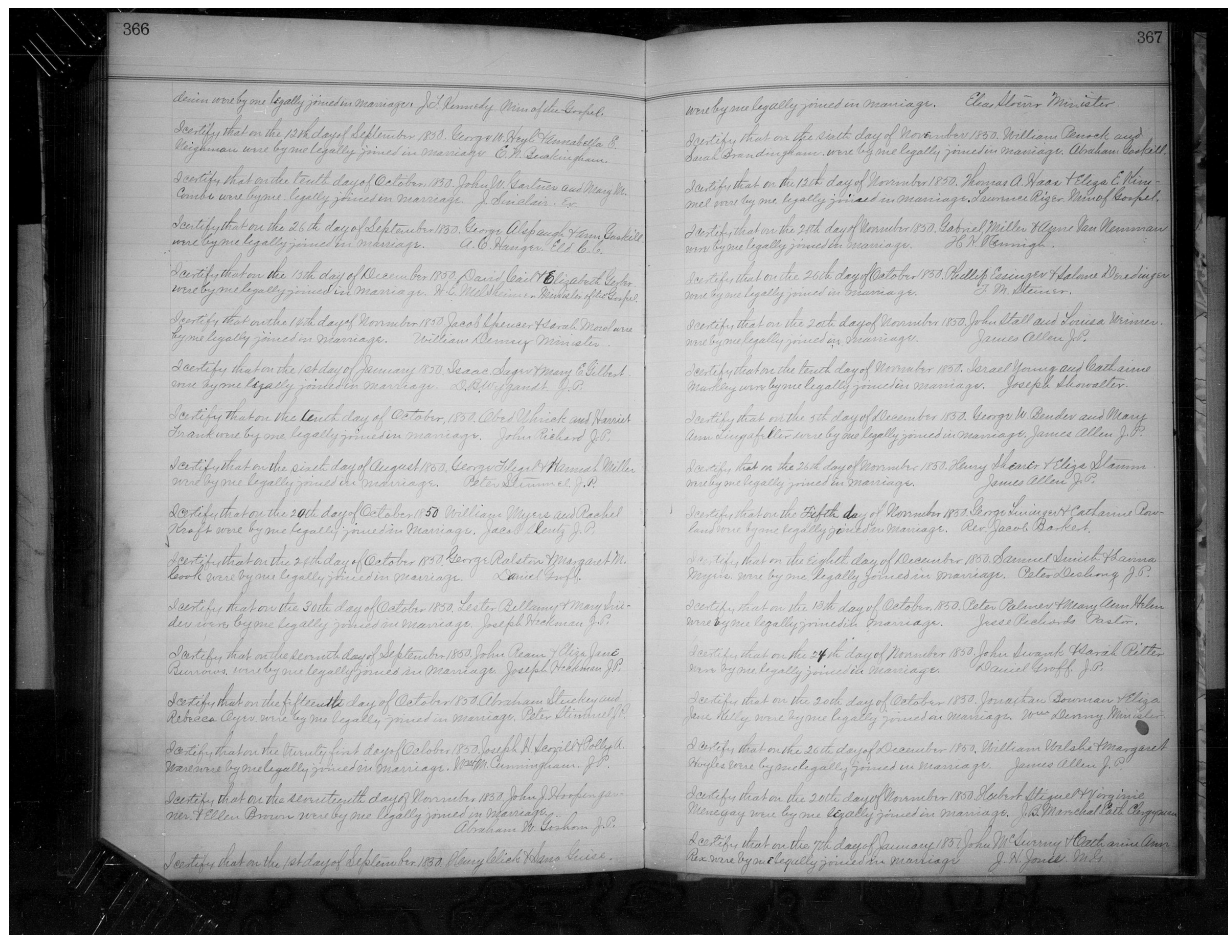 366
denin were by me legally joined in marriage. J. F. Kennedy Min of the Gospel.
I certify that on the 12th day of September 1850. George W. Heyl & Annabella E.
were by me legally joined in marriage. E. W. Buckingham.
I certify that on the tenth day of October, 1850. John W. Gartner and Mary M.
Combs were by me legally joined in marriage. J. Sinclair.
I certify that on the 26th day of September 1850. George Alspaugh & Ann Gaskill
were by me legally joined in marriage. A. C. Hanger Eld. C. C.
I certify that on the 15th day of December 1850. David & Elizabeth
were by me legally joined in marriage. Minister of the Gospel.
I certify that on the 14th day of November 1850 Jacob Spencer & Sarah were
by me legally joined in marriage. William Denny Minister.
I certify that on the 1st day of January 1850. Isaac & Mary E. Gilbert
were by me legally joined in marriage. J. P.
I certify that on the tenth day of October, 1850. Obed and Harriet
Frank were by me legally joined in marriage. John Richard J. P.
I certify that on the sixth day of August 1850. George & Hannah Miller
were by me legally joined in marriage. Peter Stimmel J. P.
I certify that on the 20th day of October 1850 William Myers and Rachel
Kraft were by me legally joined in Marriage. Jacob Lentz J. P.
I certify that on the 24th day of October 1850. George Ralston & Margaret M.
Cook were by me legally joined in marriage. Daniel Groff.
I certify that on the 30th day of October 1850. Lester Bellamy & Mary Sni-
der were by me legally joined in marriage. Joseph Heckman J. P.
I certify that on the seventh day of September 1850. John Ream & Eliza Jane
Burrows, were by me legally joined in marriage. Joseph Heckman J. P.
I certify that on the fifteenth day of October 1850 Abraham Stuckey and
Rebecca were by me legally joined in marriage. Peter Stimmel J. P.
I certify that on the twenty first day of October 1850. Joseph H. Scovill & Polly A.
Ware were by me legally joined in marriage. Wm. M. Cunningham. J. P.
I certify that on the seventeenth day of November 1850 John J. Hoofingar-
ner & Ellen Brown were by me legally joined in marriage.
Abraham W. Gorham J. P.
I certify that on the 1st day of September 1850. Henry Click & Guise.
367
were by me legally joined in marriage. Elias Minister
I certify that on the sixth day of November 1850. William Penock and
Sarah were by me legally joined in marriage. Abraham Gaskill.
I certify that on the 12th day of November 1850. Thomas A. Haas & Eliza E. Kim-
mel were by me legally joined in marriage. Lawrence Min of Gospel.
I certify that on the 28th day of November 1850. Gabriel Miller & Van Newman
were by me legally joined in marriage.
I certify that on the 26th day of October 1850. Phillip Essinger & Salome
were by me legally joined in marriage. F. M. Steiner.
I certify that on the 20th day of November 1850. John Stall and Louisa Weimer.
were by me legally joined in marriage. James Allen J. P.
I certify that on the tenth day of November 1850. Israel Young and Catharine
Markley were by me legally joined in marriage. Joseph Showalter.
I certify that on the 5th day of December 1850. George W. Bender and Mary
Ann Lingafelter were by me legally joined in marriage, James Allen J. P.
I certify that on the 26th day of November 1850. Henry & Eliza Stamm
were by me legally joined in marriage. James Allen J. P.
I certify that on the Fifth day of November 1850. George & Catharine Row-
land were by me legally joined in marriage. Rev. Jacob Basket.
I certify that on the Eighth day of December 1850. Samuel Smith & Lavina
Myers were by me legally joined in marriage. Peter Deshong J. P.
I certify that on the 13th day of October, 1850. Peter Palmer & Mary Ann Helm
were by me legally joined in marriage. Jesse Richards Pastor.
I certify that on the 24th day of November 1850. John Swank & Sarah Ritter
were by me legally joined in marriage. Daniel Groff. J. P.
I certify that on the 20th day of October 1850. Jonathan Bowman & Eliza
Jane Kelly were by me legally joined in marriage. Wm Denny Minister.
I certify that on the 26th day of December 1850. William Welshe & Margaret
Hoyles were by me legally joined in marriage. James Allen J. P.
I certify that on the 20th day of November 1850. Hubert & Virginie
were by me legally joined in marriage. J. B. Marechal Cath. Clergyman
I certify that on the 7th day of January 1851 John & Catharine Ann
Rex were by me legally joined in marriage J. H. Jones M. G.